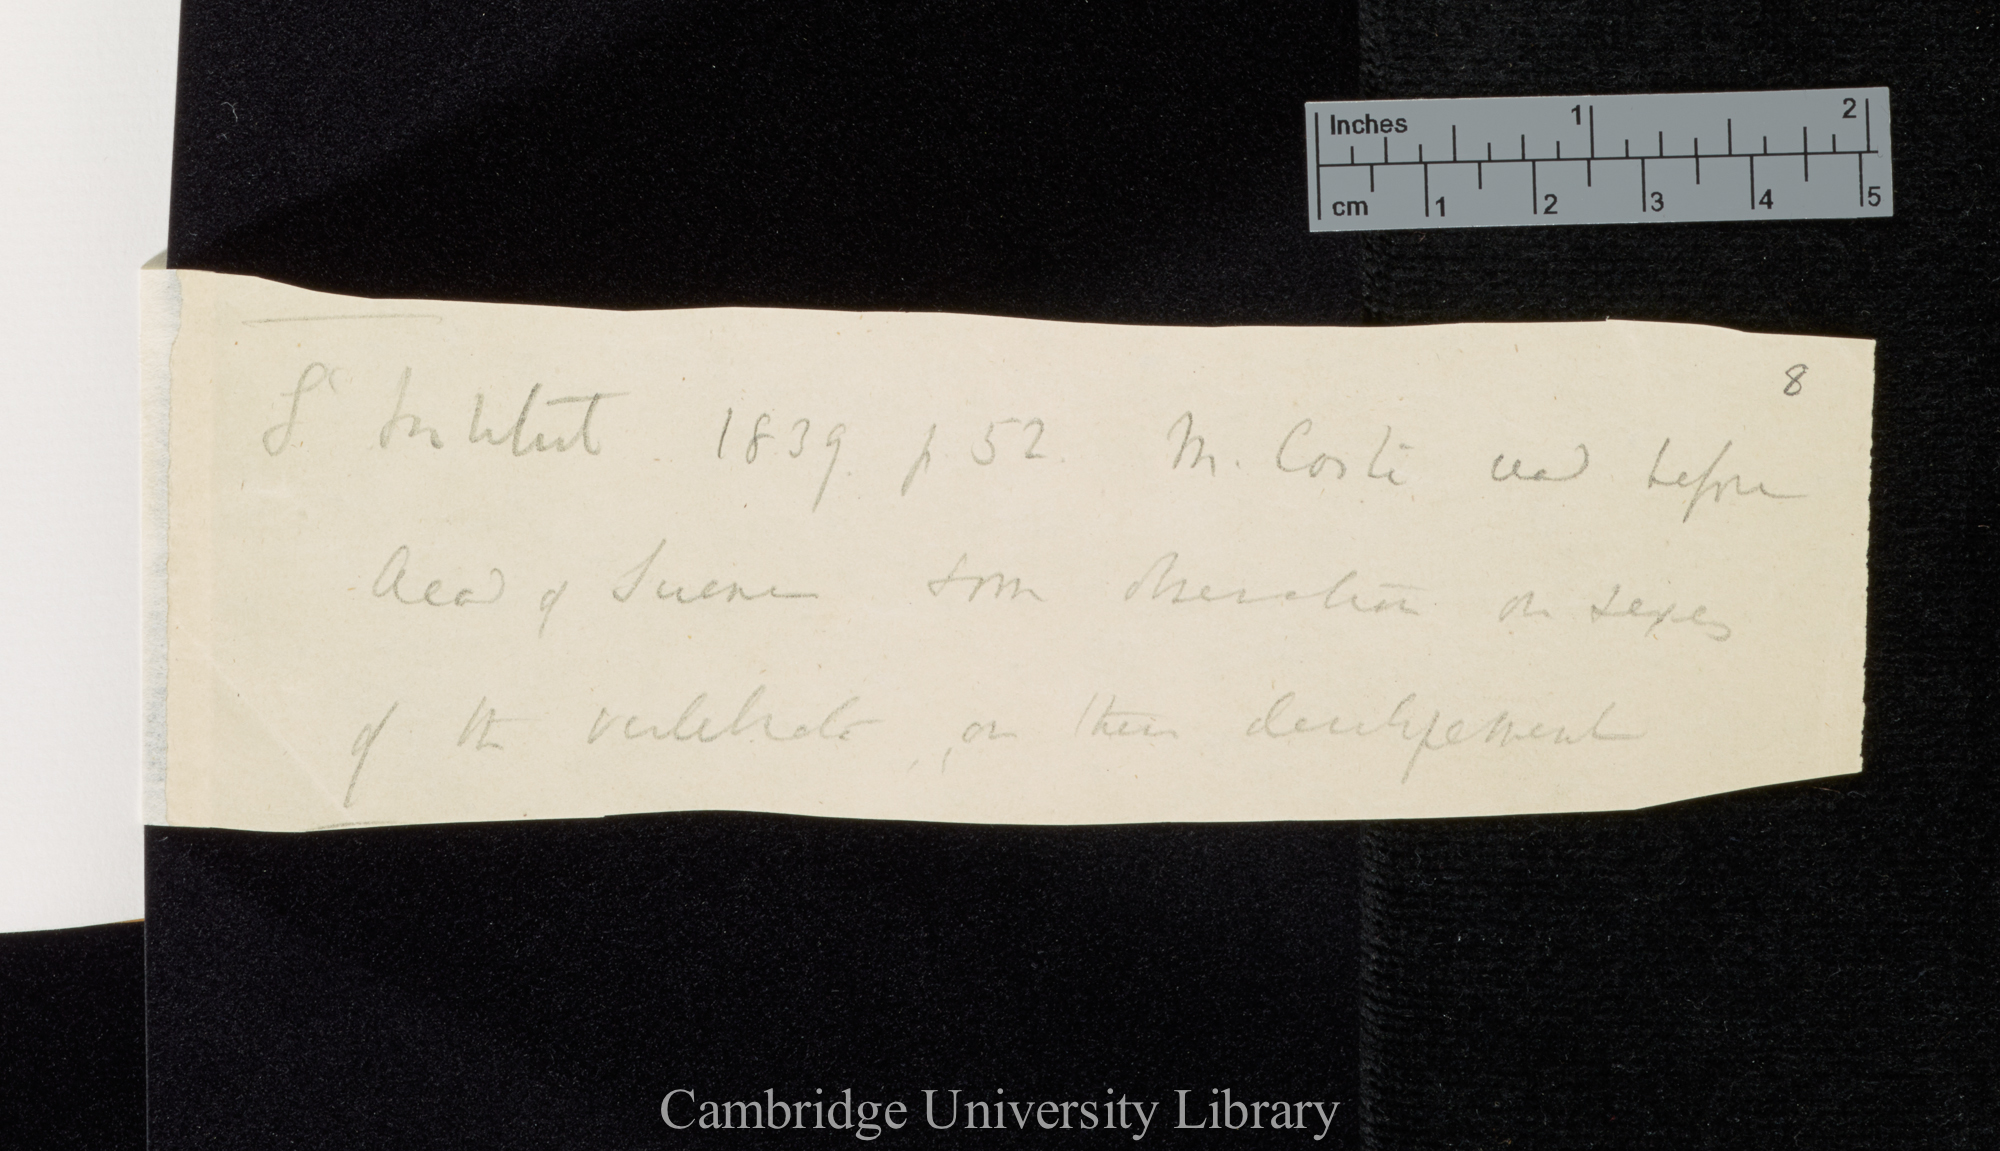 8
L'Institut. 1839. p. 52. M. Coste read before
Acad of Science some observation on sexes
of the vertebrate, on their developement
Inches 1 2
cm 1 2 3 4 5
Cambridge University Library